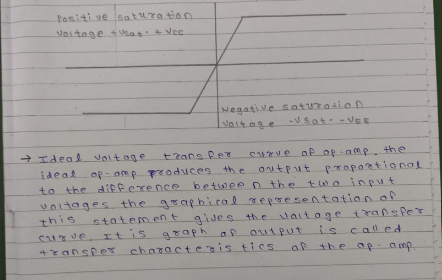 Positive saturation
voltage +Vsat. + Vcc
Negative saturation
voltage -Vsat- -VEE
→ Ideal voltage transfer curve of op-amp, the
ideal op-amp produces the output propational
to the difference between the two input
voltages the graphical representation of
this statement gives the voltage transfer
curve. It is graph of output is called
transfer characteristics of the op-amp